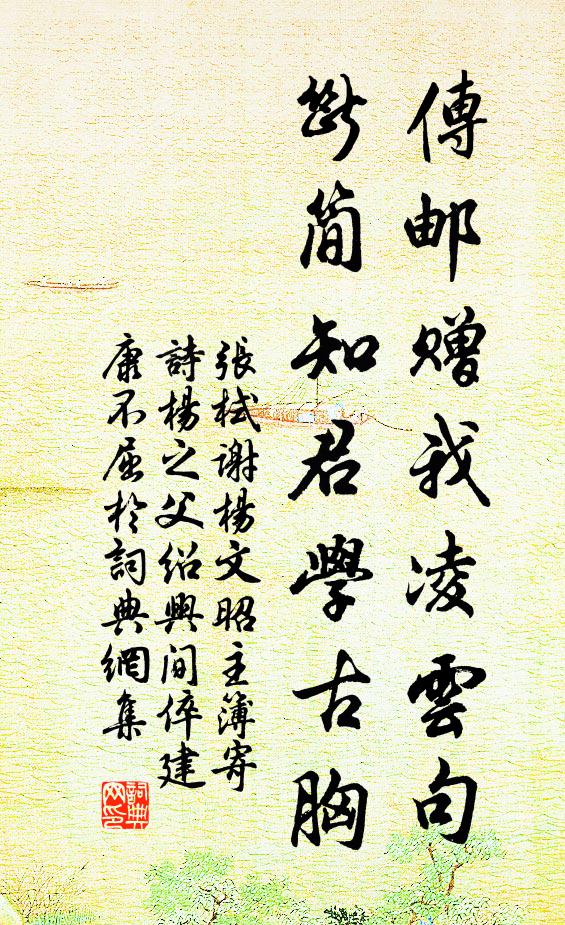 傳邮赠我凌雲句
斷简知君學古胸
張栻谢楊文昭主簿寄
詩楊之父绍興间倅建
康不屈於詞典網集
詞典
网印